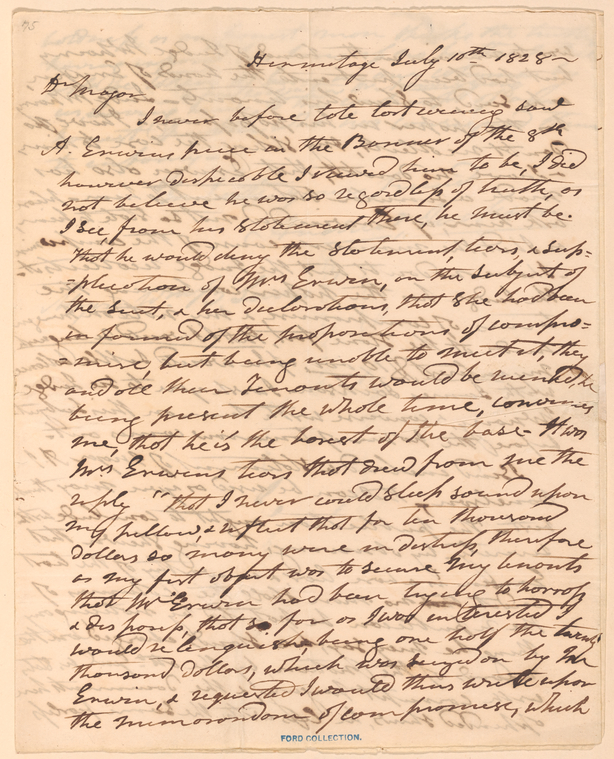 75
Hermitage July 10th 1828—
Dr Major
I never before late last evening saw
A. Erwins piece in the Banner of the 8th
however despicable I viewed him to be, I did
not believe he was so regardless of truth, as
I see, from his statement there, he must be.
That he would deny the statement, tears, & sup=
=plication of Mrs Erwin, on the subject of
the suit, & her declarations, that she had been
informed of the propositions of compro=
=mise, but being unable to meet it, they
and all their Tenants would be ruined, he
being present the whole time, convinces
me, that he is the basest of the base— It was
Mrs Erwins tears that drew from me the
reply "that I never could sleep sound upon
my pillow, & reflect that for ten thousand
dollars so many were in distress, therefore
as my first object was to secure my tenants
that Mr Erwin had been trying to harrass
& dispossess, that so far as I was interested I
would relinquish, being one half the twenty
thousand dollars, which was seized on by Mr
Erwin, & requested I would thus write upon
the memorandom of compromise, which
FORD COLLECTION.